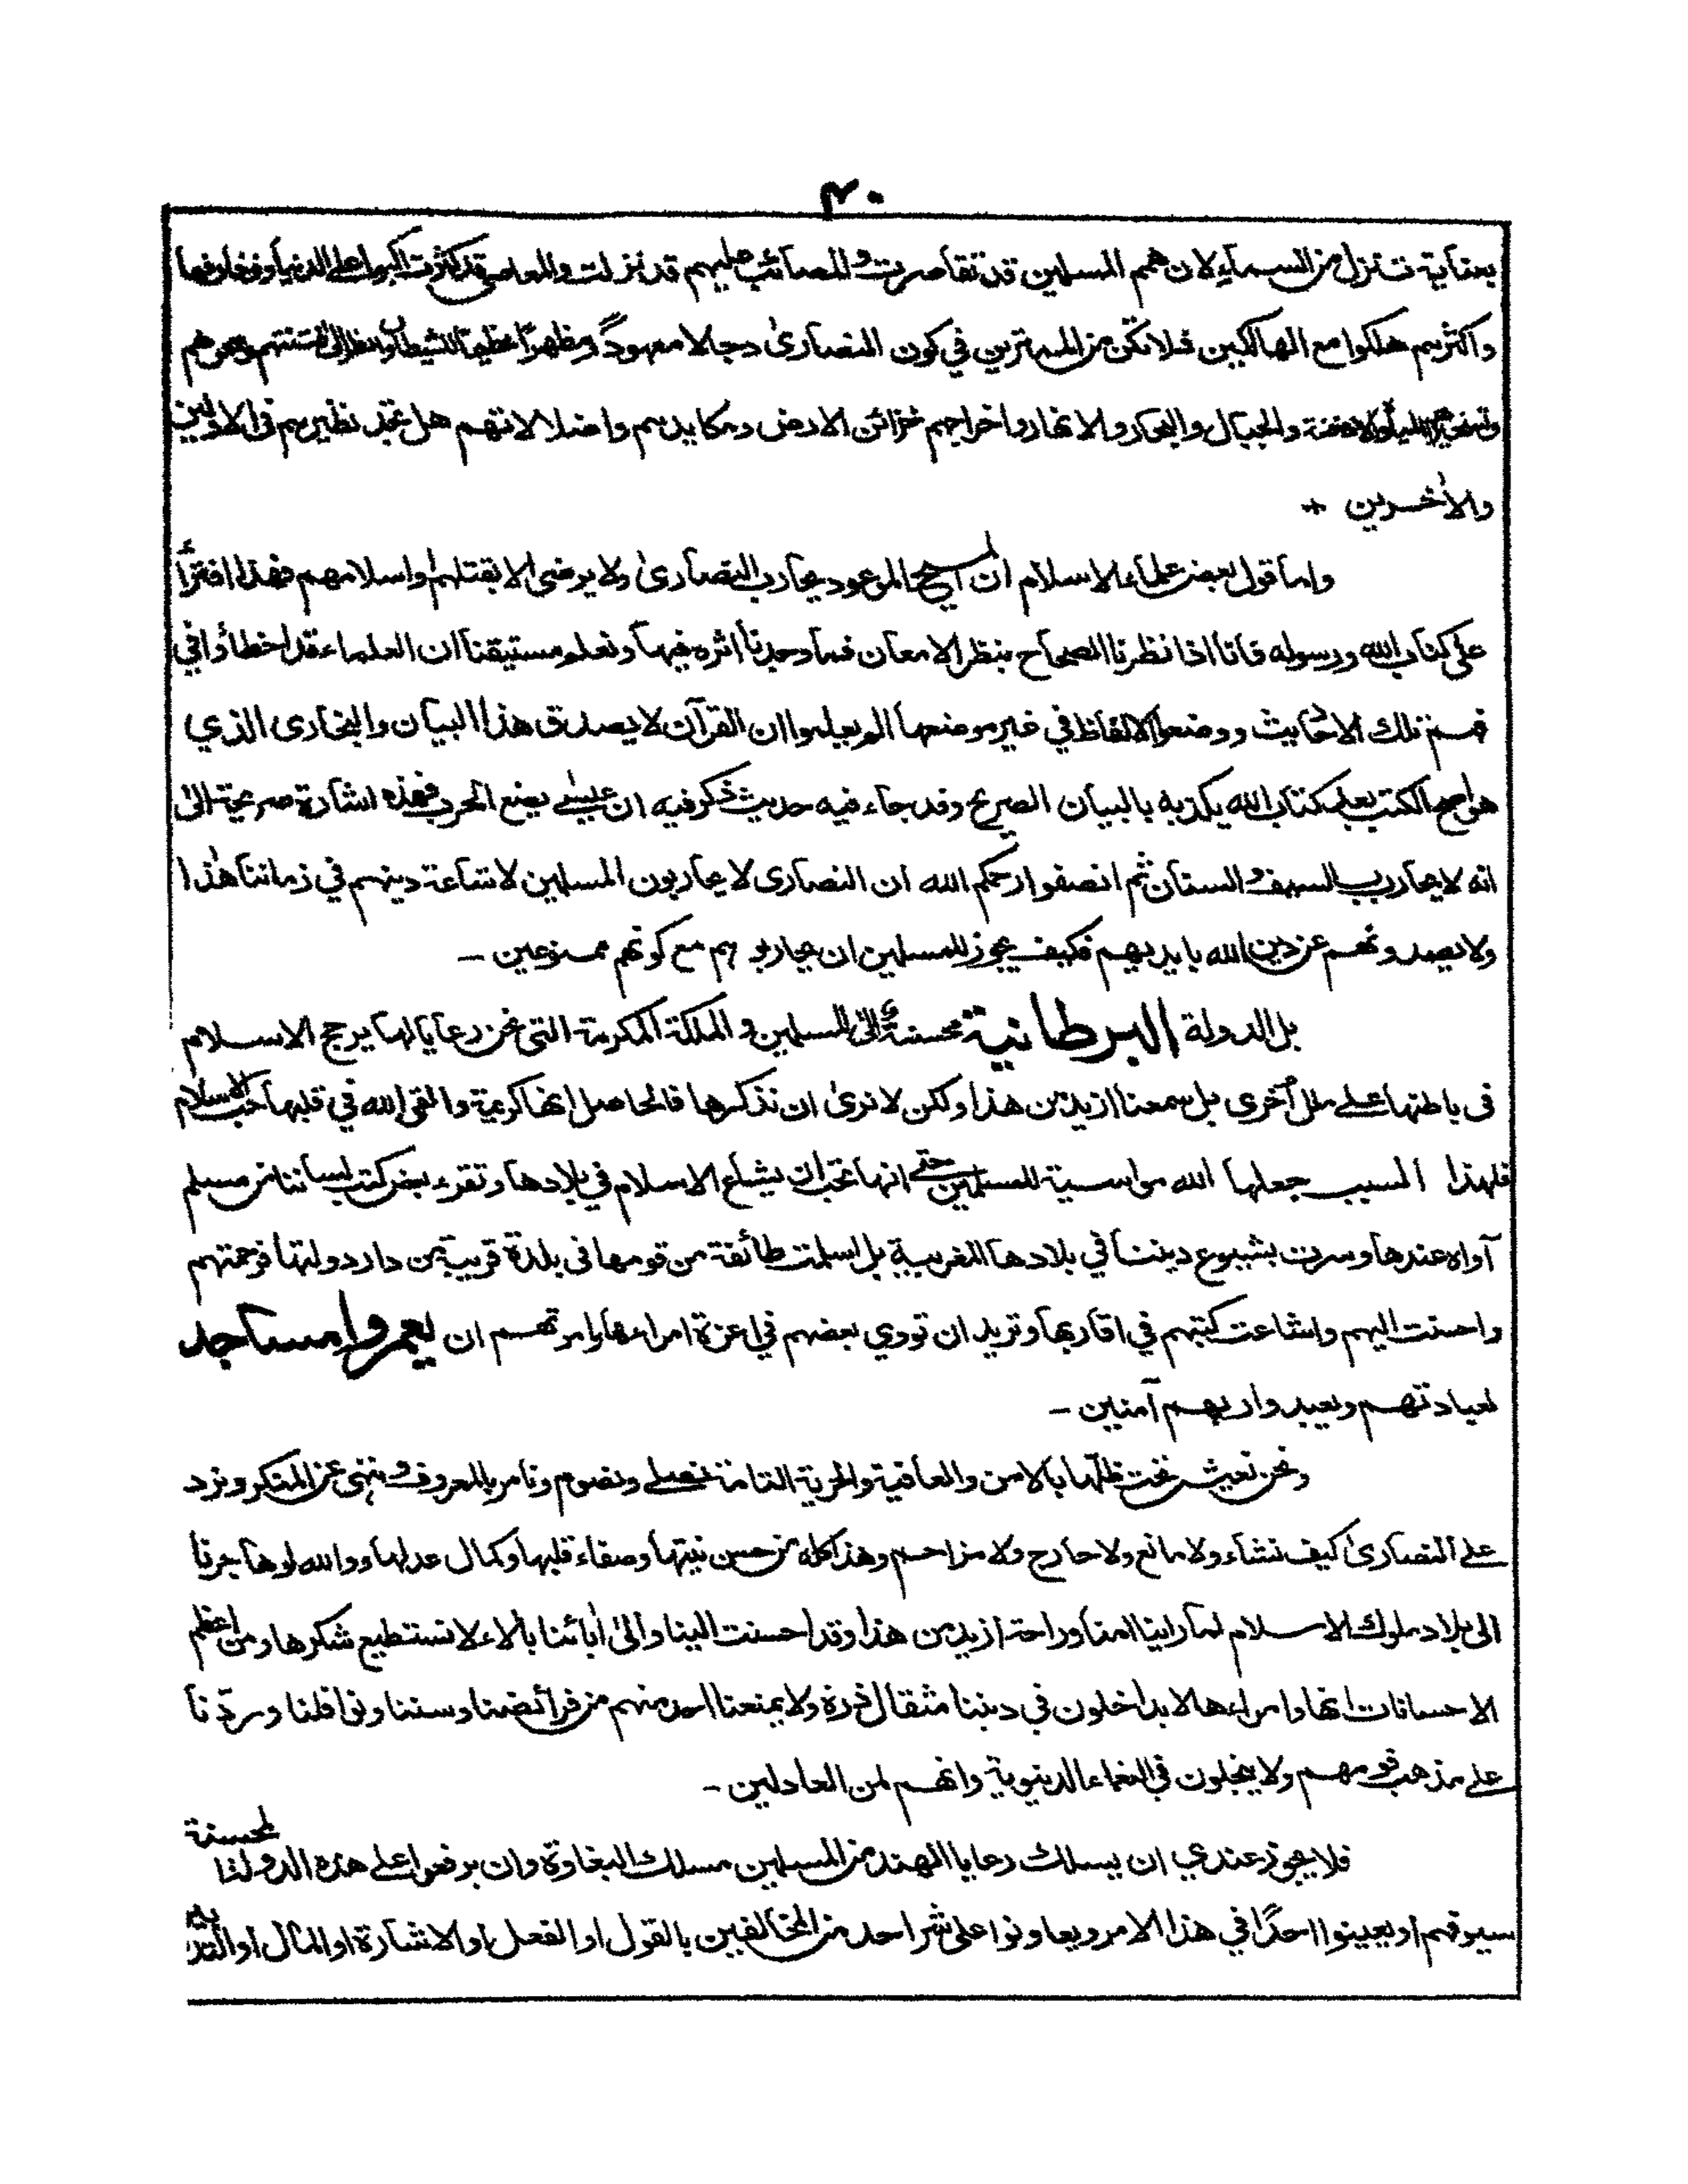 ۴۰
بعناية تنزل من السماء لان همم المسلمين قد تقاصرت والمصائب عليهم قد نزلت والمعاصی قد كثرت اكبوا على الدنيا وزخارفها
واكثرهم هلكوا مع الهالكين فلا تكن من الممترين في كون النصارىٰ دجالا معهودًا ومظهرًا عظيما للشيطان وانظر الى فتنتهم
والجبال والبحار والانهار واخراجهم خزائن الارض ومكايدهم واضلالاتهم هل تجد نظيرهم فى الاولين
والاٰخرين +
واما قول بعض علماء الاسلام ان المسيح الموعود يحارب النصارىٰ ولا يرضى الا بقتلهم او اسلامهم فهذا افتراءٌ
على كتاب الله ورسوله فانا اذا نظرنا الصحاح بنظر الامعان فما وجدنا اثره فيها ونعلم مستيقنا ان العلماء قد اخطأوا في
فهم تلك الاحاديث ووضعوا الالفاظ في غير موضعها الم يعلموا ان القرآن لا يصدق هذا البيان والبخارى الذي
هو اصح الكتب بعد كتاب الله يكذبه بالبيان الصريح وقد جاء فيه حديث ذكر فيه ان عيسٰے يضع الحرب فهذه اشارة صريحة الىٰ
انه لا يحارب بالسيف والسنان ثم انصفوا رحمكم الله ان النصارى لا يحاربون المسلمين لاشاعة دينهم في زماننا هٰذا
ولا يصدونهم عن دين الله بايديهم فكيف يجوز للمسلمين ان يحاربوهم مع كونهم ممنوعين –
بل الدولة البرطانية محسنةٌ الى المسلمين والملكة المكرمة التى نحن رعايا لها يرجح الاسلام
فى باطنها علے ملل اُخرى بل سمعنا ازيد من هذا ولكن لا نرىٰ ان نذكرها فالحاصل انها كريمة والقى الله في قلبها حب الاسلام
فلهذا السبب جعلها الله مواسية للمسلمين حتے انها تحب ان يشاع الاسلام في بلادها وتقرء بعض كتب لساننا من مسلم
آواه عندها وسرت بشيوع ديننا في بلادها المغربية بل اسلمت طائفة من قومها فى بلدة قريبة من دار دولتها فرحمتهم
واحسنت اليهم واشاعت كتبهم في اقاربها وتريد ان تودي بعضهم في اعزة امراءها وامرتهم ان يعمروا مساجد
لعبادتهم ويعبدوا ربهم آمنين –
ونحن نعيش تحت ظلها بالامن والعافية والحرية التامة نصلے ونصوم ونامر بالمعروف وننهى عن المنكر ونرد
علے النصارىٰ كيف نشاء ولا مانع ولا حارج ولا مزاحم وهذا كله من حسن نيتها وصفاء قلبها وكمال عدلها ووالله لو هاجرنا
الى بلاد ملوك الاسلام لما راينا امنا وراحة ازيد من هذا وقد احسنت الينا والىٰ اٰبائنا بالاء لا نستطيع شكرها ومن اعظم
الاحسانات انها وامراءها لا يداخلون في ديننا مثقال ذرة ولا يمنعنا احد منهم من فرائضنا وسننا ونوافلنا وردّنا
علے مذهب قومهم ولا يبخلون في النعماء الدنيوية وانهم لمن العادلين –
فلا يجوز عندي ان يسلك رعايا الهند من المسلمين مسلك البغاوة وان يرفعوا على هذه الدولة المحسنة
سيوفهم او يعينوا احدًا في هذا الامر ويعاونوا على شر احد من المخالفين بالقول او الفعل او الاشارة او المال او التدبير